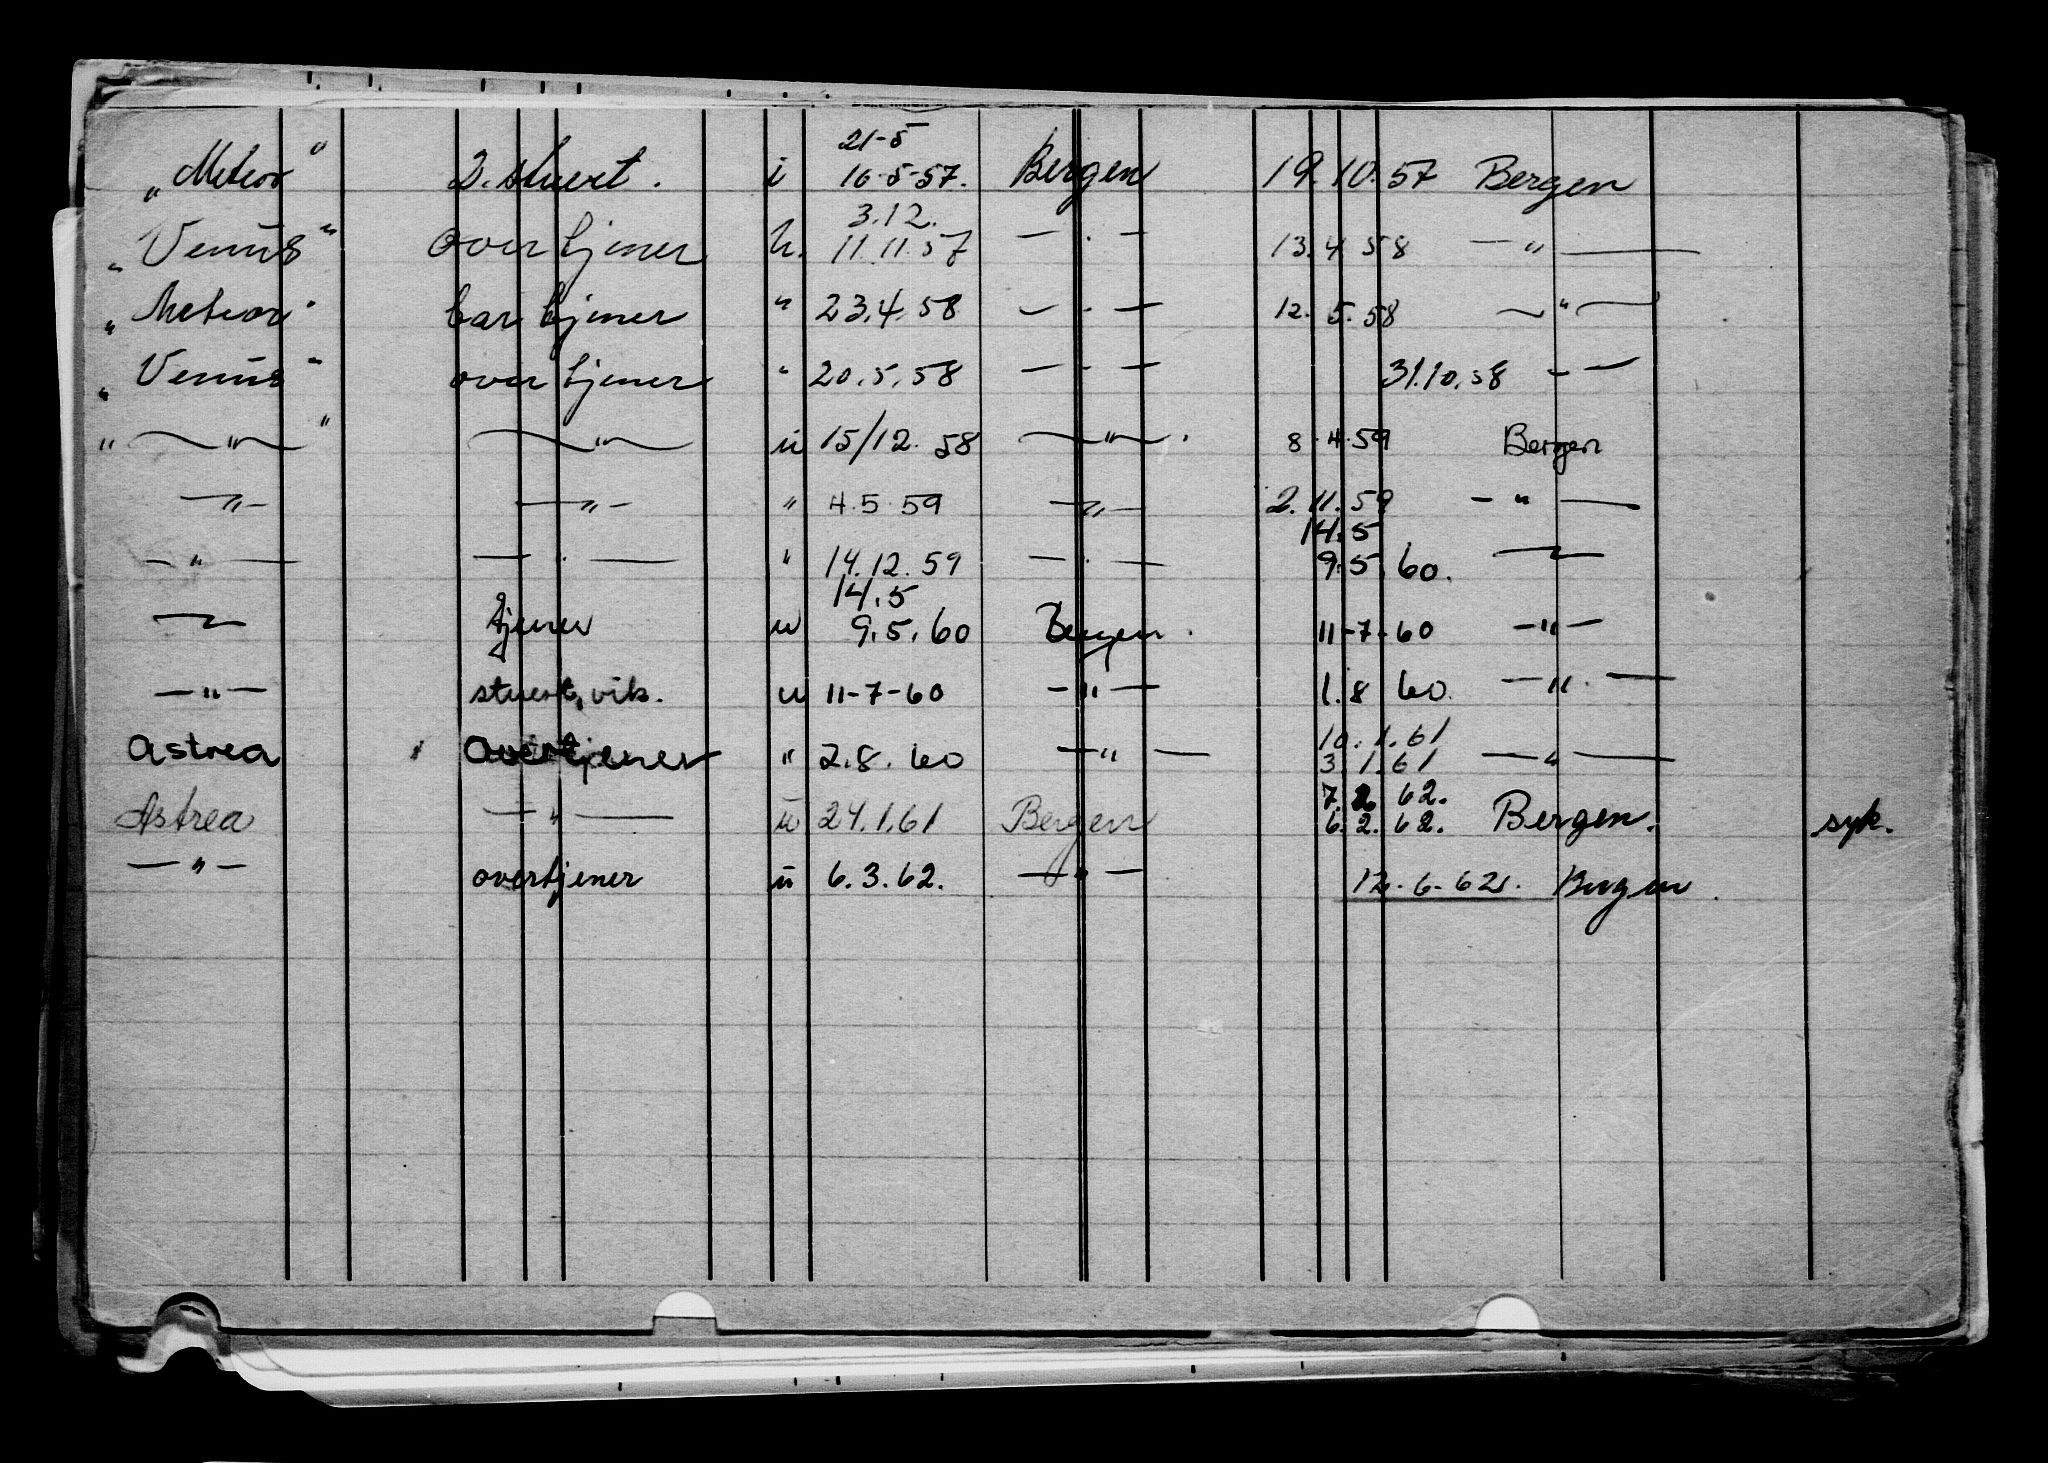 21-5
„Meteor" 2. stuert. i 16-5-57. Bergen 19.10.57 Bergen
3.12.
„Venus" overtjener u. 11.11.57 — . — 13.4.58 — " —
„Meteor" bartjener " 23.4.58 — . — 12.5.58 — " —
„Venus" overtjener " 20.5.58 — - — 31.10.58 - —
" — " — " — " — u 15/12.58 — " — . 8.4.59 Bergen
— " — — " — " 4.5.59 — " — 2.11.59 — " —
14.5
— " — — . — " 14.12.59 — . — 9.5.60. — " —
14.5
— " — tjener u 9.5.60 Bergen. 11-7-60 — " —
— " — stuert, vik. u 11-7-60 — " — 1.8.60. — " —
10.1.61
Astrea overtjener " 2.8.60 — " — 3.1.61 — " —
7.2.62.
Astrea — " — u 24.1.61 Bergen 6.2.62. Bergen. syk.
— " — overtjener u 6.3.62. — " — 12.6.62. Bergen.